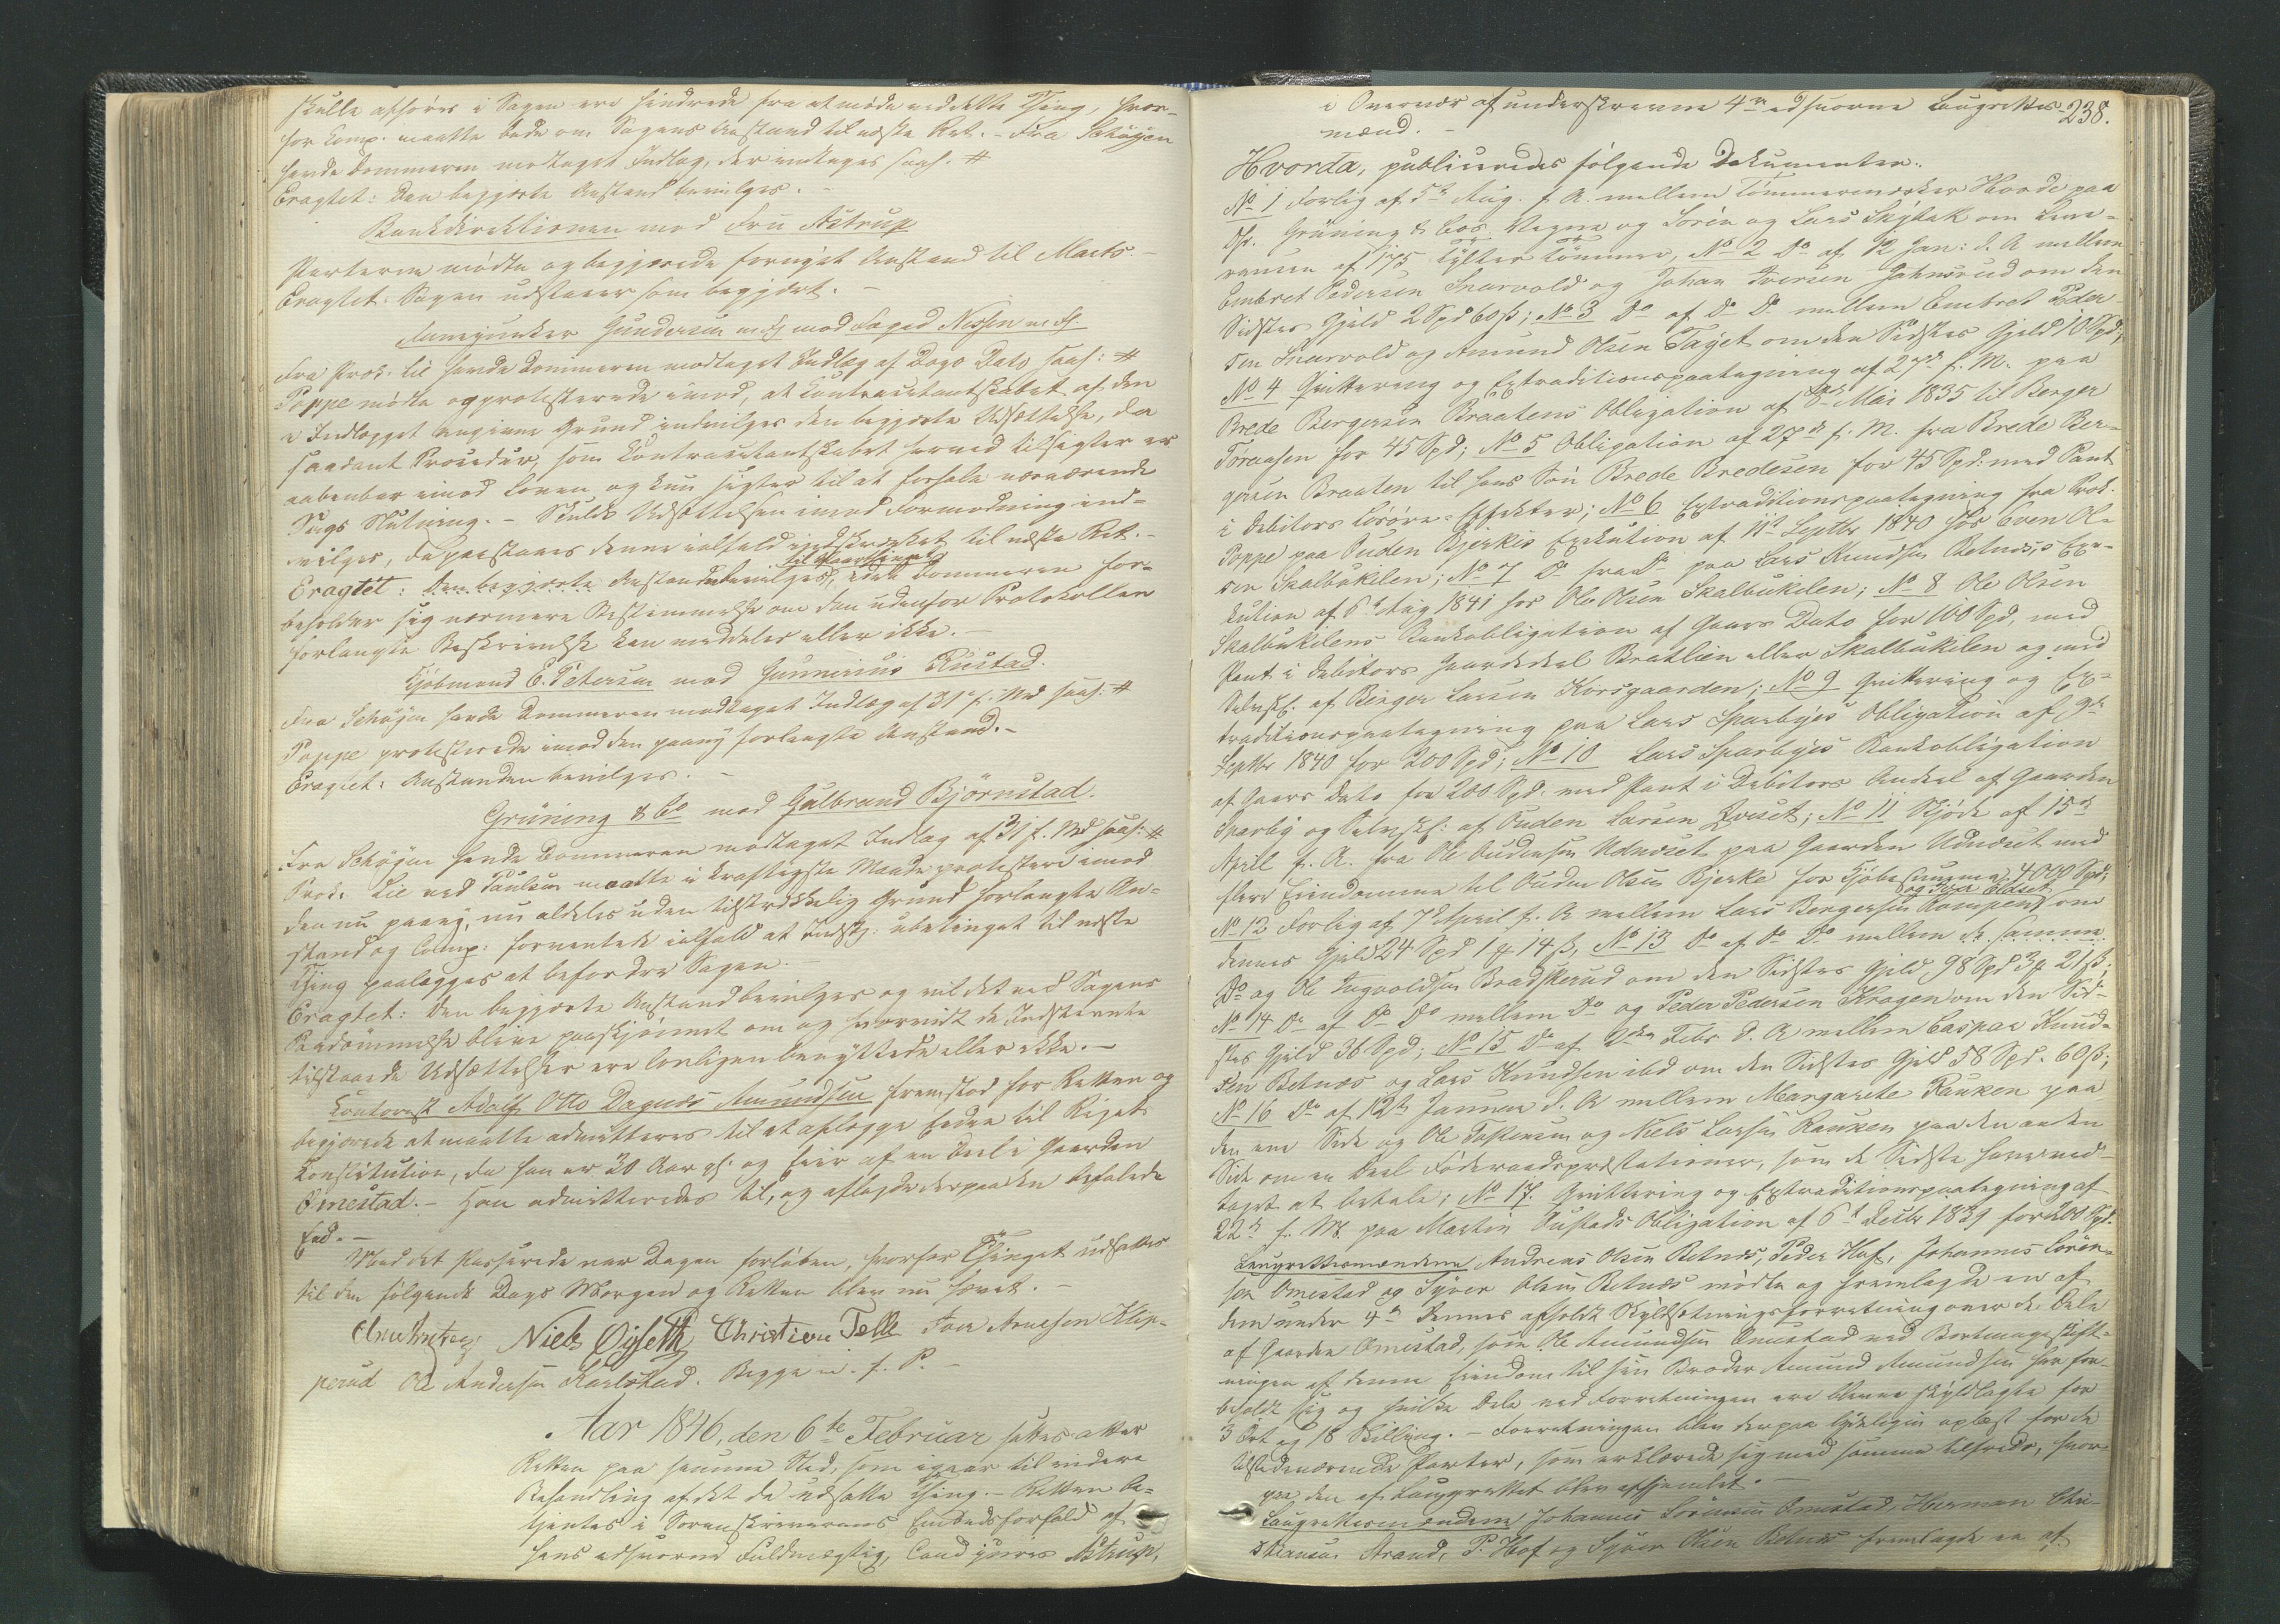 skulle afhøres i Sagen ere hindrede fra at møde ved dette Thing, hvor-
for Comp. maatte bede om Sagens Anstand til næste Ret. - Fra Schøyen
havde Dommeren modtaget Indlæg, der indtages saal. #
Eragtet: Den begjærte Anstand bevilges. -
Bankdirektionen mod Fru Astrup
Parterne mødte og begjærede fornyet Anstand til Marts. -
Eragtet: Sagen udstaaer som begjært. -
Fanejunker Gundersen mod Foged Nissen
Fra Prok. Lie havde Dommeren modtaget Indlæg af Dags Dato saal: #
Poppe mødte og protesterede imod, at Contracitantskabet af den
i Indlægget angivne Grund indvilges den begjærte Udsættelse, da
saadant Procedur, som Contracitantskabet herved tilsigter er
aabenbar imod Loven og kun sigter til at forhale nærværende
Sags Slutning. - Skulde Udsættelsen imod Formodning ind-
vilges, da paastaaes denne ialfald indskrænket til næste Ret. -
Eragtet: Den begjærte Anstand bevilges, idet Dommeren for-
beholder sig nærmere Bestemmelse om den udenfor Protokollen
forlangte Beskrivelse kan meddeles eller ikke. -
Kjøbmand C. Petersen mod Gunnerius Rustad.
Fra Schøyen havde Dommeren modtaget Indlæg af 31 f. Md saal: #
Poppe protesterede imod den paany forlangte Anstand. -
Eragtet: Anstanden bevilges. -
Grüning & Co mod Gulbrand Bjørnstad.
Fra Schøyen havde Dommeren modtaget Indlæg af 31 f. Md saal: #
Prok. Lie ved Paulsen maatte i kraftigste Maade protestere imod
den nu paany, nu aldeles uden tilstrækkelig Grund forlangte An-
stand og Comp: forventede ialfald at Indst: ubetinget til næste
Thing paalægges at befordre Sagen. -
Eragtet: Den begjærte Anstand bevilges og vil det ved Sagens
Paadømmelse blive paaskjønnet om og hvorvidt de Indstevnte
tilstaaede Udsættelser ere lovligen benyttede eller ikke. -
Contorist Adolf Otto Dagnæs Amundsen fremstod for Retten og
begjærede at maatte admitteres til at aflægge Eeden til Rigets
Constitution, da han er 20 Aar gl. og Eier af en Deel i Gaarden
Omestad. - Han admitteredes til, og aflagde derpaa den befalede
Eed. -
Med det Passerede var Dagen forløben, hvorfor Thinget udsattes
til den følgende Dags Morgen og Retten blev nu hævet. -
Niels Øiseth Christian Telle Iver Arnesen Klop-
perud Ole Andersen Karlstad. Begge m. f. P. -
Aar 1846, den 6te Februar sattes atter
Retten paa samme Sted, som igaar til videre
Behandling af det da udsatte Thing. - Retten be-
tjentes i Sorenskriverens Embedsforfald af
hans edsvorne Fuldmægtig, Cand juris Astrup,
i Overvær af underskrevne 4re edsvorne Laugrettes-
238.
mænd. -
Hvorda, publiceredes følgende Dokumenter:
No 1 Forlig af 5te Aug. f. A. mellem Tømmermærker Hoode paa
Hr. Grüning & Cos Vegne og Sørén og Lars Skybak om Leve-
rancen af 175 Tylter Tømmer, No 2 Do af 12 Jan: d. A mellem
Embret Pedersen Snarvold og Johan Iversen Jahnsrud om den
Sidstes Gjeld 2 Spd 60 ß; No 3 Do af Do Do mellem Embret Peder-
sen Snarvold og Amund Olsen Tayet om den Sidstes Gjeld 10 Spd;
No 4 Qvittering og Extraditionspaategning af 27de f. M. paa
Brede Bergersen Braatens Obligation af 8de Mai 1835 til Berger
Toraasen for 45 Spd; No 5 Obligation af 27de f. M. fra Brede Ber-
gersen Braaten til hans Søn Brede Bredesen for 45 Spd: med Pant
i Debitors Løsøre-Effekter; No 6 Extraditionspaategning fra Prok.
Poppe paa Ouden Bjerkes Exekution af 11te Septbr 1840 hos Even Ol-
sen Skalbukilen; No 7 Do fra Do paa Lars Knudsen Betnæs's Exe-
kution af 6te Aug 1841 hos Ole Olsen Skalbukilen; No 8 Ole Olsen
Skalbukilens Bankobligation af Gaars Dato for 100 Spd, med
Pant i Debitors Gaardedeel Bratlien eller Skalbukilen og med
Selvsk. af Birger Larsen Korsgaarden; No 9 Qvittering og Ex-
traditionspaategning paa Lars Sparbyes Obligation af 9de
Septbr 1840 for 200 Spd; No 10 Lars Sparbyes Bankobligation
af Gaars Dato for 200 Spd. med Pant i Debitors Andeel af Gaarden
Sparby og Selvsk: af Ouden Larsen Zviset; No 11 Skjøde af 15de
April f. A. fra Ole Oudensen Udnæset paa Gaarden Udnæset med
flere Eiendomme til Ouden Olsen Bjerke for Kjøbesummen 4000 Spd;
No 12 Forlig af 7 April f. A mellem Lars Bergersen Rampen om
dennes Gjeld 24 Spd 1 ℔ 14 ß, No 13 Do af Do Do mellem de samme
Do og Ole Ingvoldsen Bradskerud om den Sidstes Gjeld 98 Spd 3 ℔ 21 ß;
No 14 Do af Do Do mellem Do og Peder Pedersen Kragen om den Sid-
stes Gjeld 36 Spd; No 15 Do af 2den Febr d. A mellem Caspar Knud-
sen Betnæs og Lars Knudsen ibd om den Sidstes Gjeld 58 Spd. 60 ß;
No 16 Do af 12te Januar d. A mellem Margarete Rauken paa
den ene Side og Ole Tostensen og Niels Larsen Rauken paa den anden
Side om en Deel Føderaadspræstationer, som de Sidste have ved-
taget at betale; No 17. Qvittering og Extraditionspaategning af
22de f. M. paa Martin Austads Obligation af 6te Decbr 1839 for 200 Spd.
Laugrettesmændene Andreas Olsen Betnæs, Peder Hof, Johannes Lören-
sen Omestad og Syver Olsen Betnæs mødte og fremlagde en af
dem under 4de dennes afholdt Skyldsætningsforretning over de Dele
af Gaarden Omestad, som Ole Amundsen Omestad ved Bortmageskift-
ningen af denne Eiendom til sin Broder Amund Amundsen har for-
beholdt sig og hvilke Dele ved Forretningen ere blevne skyldlagte for
3 Ort og 18 Skilling. - Forretningen blev derpaa lydeligen oplæst for de
tilstedeværende Parter, som erklærede sig med samme tilfreds, hvor-
paa den af Laugrettet blev afhjemlet. -
Laugrettesmændene Johannes Lörensen Omestad, Herman Chri-
stiansen Strand, P. Hof og Syver Olsen Betnæs fremlagde en af